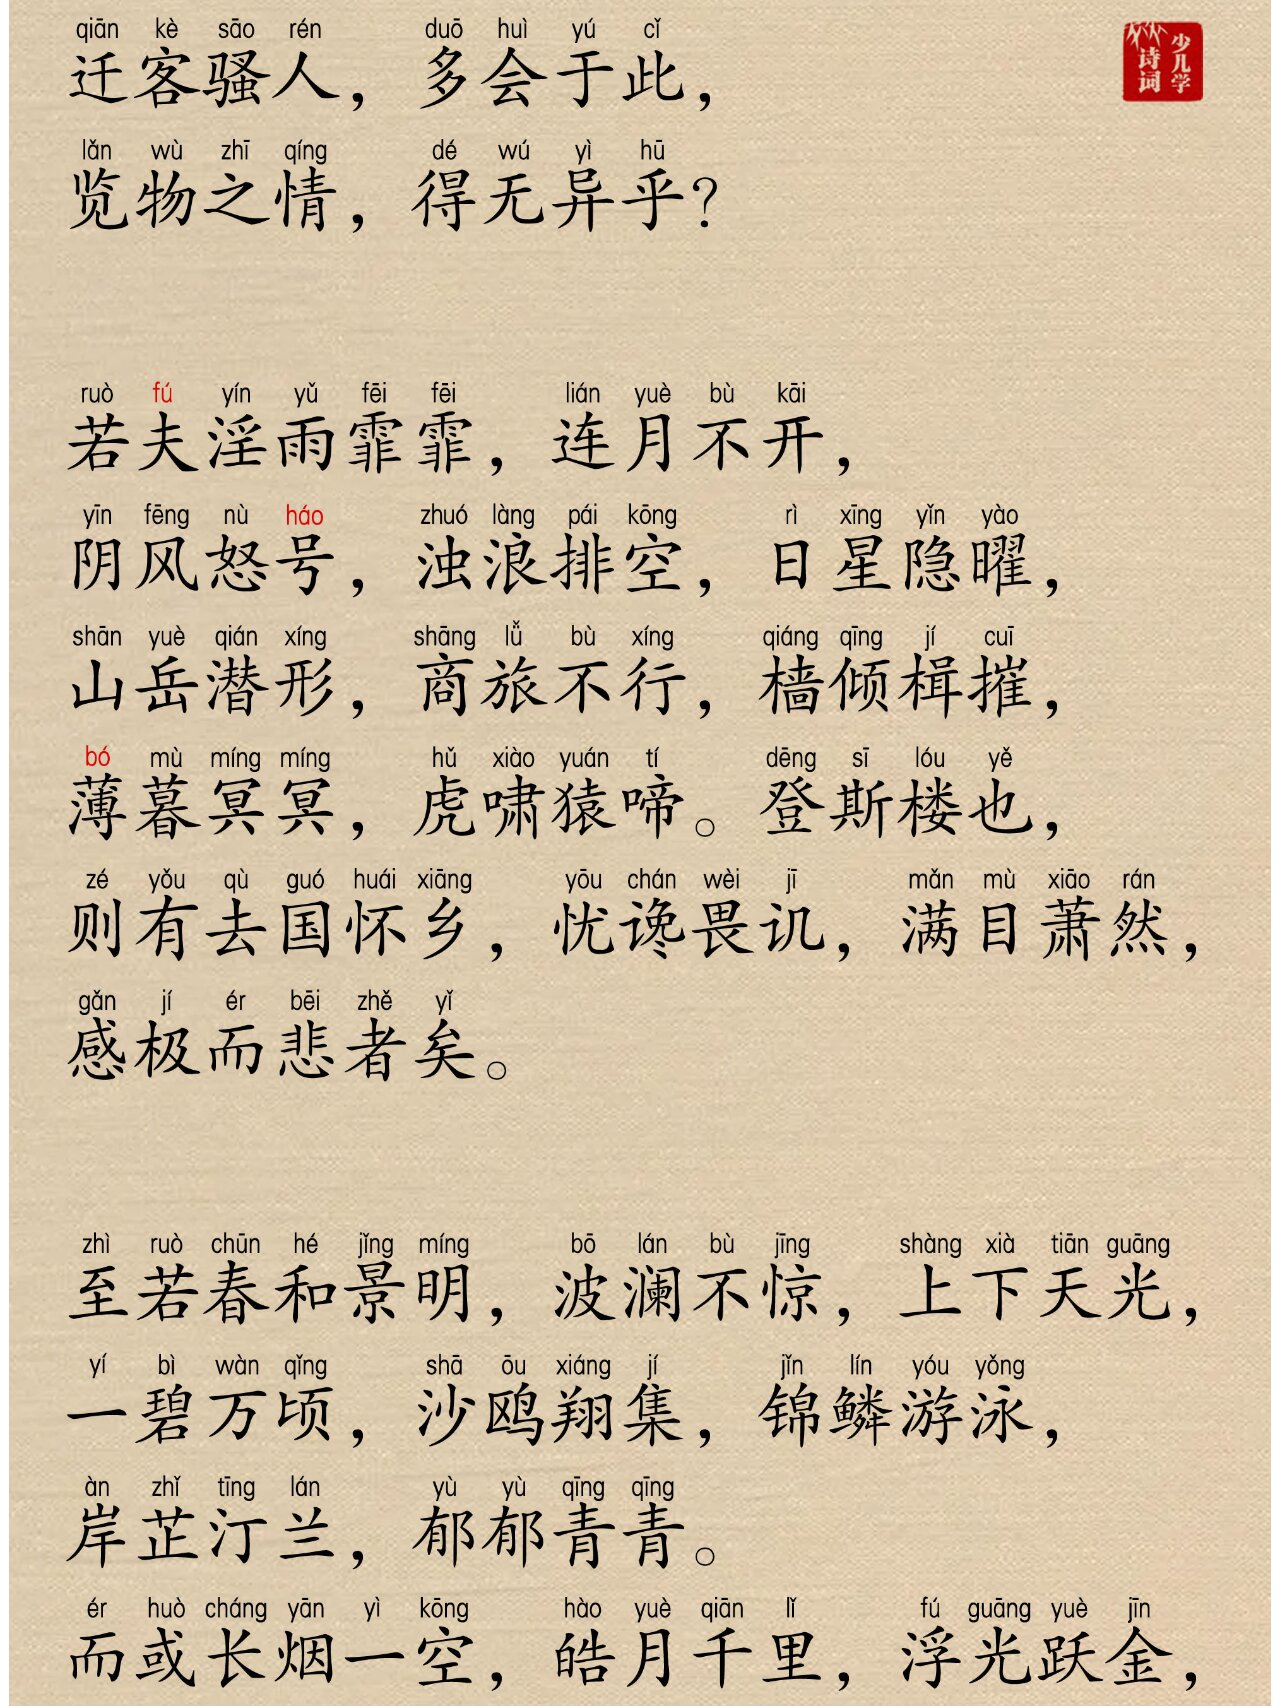 qiān kè sāo rén duō huì yú cǐ
迁客骚人，多会于此，
少儿学
诗词
lǎn wù zhī qíng dé wú yì hū
览物之情，得无异乎？
ruò fú yín yǔ fēi fēi lián yuè bù kāi
若夫淫雨霏霏，连月不开，
yīn fēng nù háo zhuó làng pái kōng rì xīng yǐn yào
阴风怒号，浊浪排空，日星隐曜，
shān yuè qián xíng shāng lǚ bù xíng qiáng qīng jí cuī
山岳潜形，商旅不行，樯倾楫摧，
bó mù míng míng hǔ xiào yuán tí dēng sī lóu yě
薄暮冥冥，虎啸猿啼。登斯楼也，
zé yǒu qù guó huái xiāng yōu chán wèi jī mǎn mù xiāo rán
则有去国怀乡，忧谗畏讥，满目萧然，
gǎn jí ér bēi zhě yǐ
感极而悲者矣。
zhì ruò chūn hé jǐng míng bō lán bù jīng shàng xià tiān guāng
至若春和景明，波澜不惊，上下天光，
yí bì wàn qǐng shā ōu xiáng jí jǐn lín yóu yǒng
一碧万顷，沙鸥翔集，锦鳞游泳，
àn zhǐ tīng lán yù yù qīng qīng
岸芷汀兰，郁郁青青。
ér huò cháng yān yì kōng hào yuè qiān lǐ fú guāng yuè jīn
而或长烟一空，皓月千里，浮光跃金，